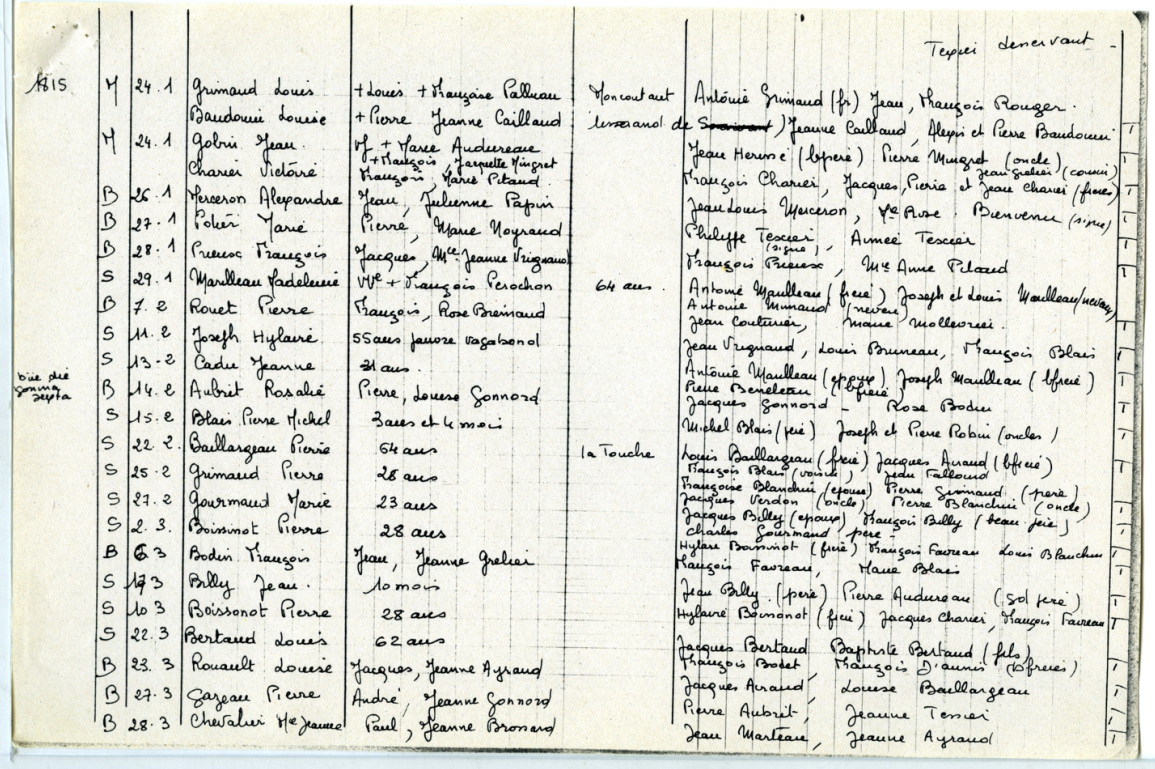 Texier desservant -
1815 M 24.1 Grimaud Louis + Louis + Françoise Palluau Moncoutant Antoine Grimaud (fr) Jean, François Rouger.
Baudouin Louise + Pierre Jeanne Caillaud tisserand de Jeanne Caillaud, Alexis et Pierre Baudouin
M 24.1 Gobin Jean. Vf + Marie Audureau Jean (bpere) Pierre Mingret (oncle)
Charier Victoire + François, Jacquette Mingret Jean Grelier (cousin)
François Marie Pitaud. François Charier, Jacques, Pierre et Jean Charier (freres)
B 26.1 Merceron Alexandre Jean, Julienne Papin Jean Louis Merceron, Me Rose Bienvenu (signe)
B 27.1 Potier Marie Pierre, Marie Noyraud Philippe Texier (signe), Aimée Texier
B 28.1 Prieux François Jacques, Mie Jeanne Vrignaud François Prieux, Mie Anne Pitaud
S 29.1 Maulleau Madeleine VVe + François Perochon 64 ans. Antoine Maulleau (frere) Joseph et Louis Maulleau (neveux)
Antoine (neveu)
B 7.2 Rouet Pierre François, Rose Bremaud Jean Couturier, Marie
S 11.2 Joseph Hylaire 55 ans pauvre vagabond Jean Vrignaud, Louis Bruneau, François Blais
S 13-2 Cadu Jeanne 31 ans. Antoine Maulleau (epoux) Joseph Maulleau (bfrere)
Pierre Beneteau (bfrere)
B 14.2 Aubrit Rosalie Pierre, Louise Gonnord Jacques Gonnord - Rose Bodin
S 15.2 Blais Pierre Michel 3 ans et 4 mois Michel Blais (pere) Joseph et Pierre Robin (oncles)
S 22.2. Baillargeau Pierre 64 ans la Touche Louis Baillargeau (frere) Jacques Airaud (bfrere)
François Blais (voisin), Jean Falloud
S 25.2 Grimaud Pierre 28 ans Françoise Blanchin (epouse) Pierre Grimaud (pere)
Jacques Verdon (oncle) Pierre Blanchin (oncle)
S 27.2 Gourmaud Marie 23 ans Jacques Billy (epoux) François Billy (beau pere)
Charles Gourmaud pere -
S 2.3. Boissinot Pierre 28 ans Hylaire Boissinot (frere) François Favreau Louis Blanchin
B 6 3 Bodin François Jean, Jeanne Grelier François Favreau, Marie Blais
S 3 Billy Jean. 10 mois Jean Billy. (pere) Pierre Audureau (gd pere)
S 10 3 Boissonot Pierre 28 ans Hylaire Boissonot (frere) Jacques Charier, François Favreau
S 22.3 Bertaud Louis 62 ans Jacques Bertaud Baptiste Bertaud (fils)
François Bodet François D'aunis (bfreres)
B 23.3 Rouault Louise Jacques, Jeanne Ayraud Jacques Airaud, Louise Baillargeau
B 27.3 Gazeau Pierre André, Jeanne Gonnord Pierre Aubrit, Jeanne Texier
B 28.3 Chevalier Mie Jeanne Paul, Jeanne Brossard Jean Marteau, Jeanne Ayraud